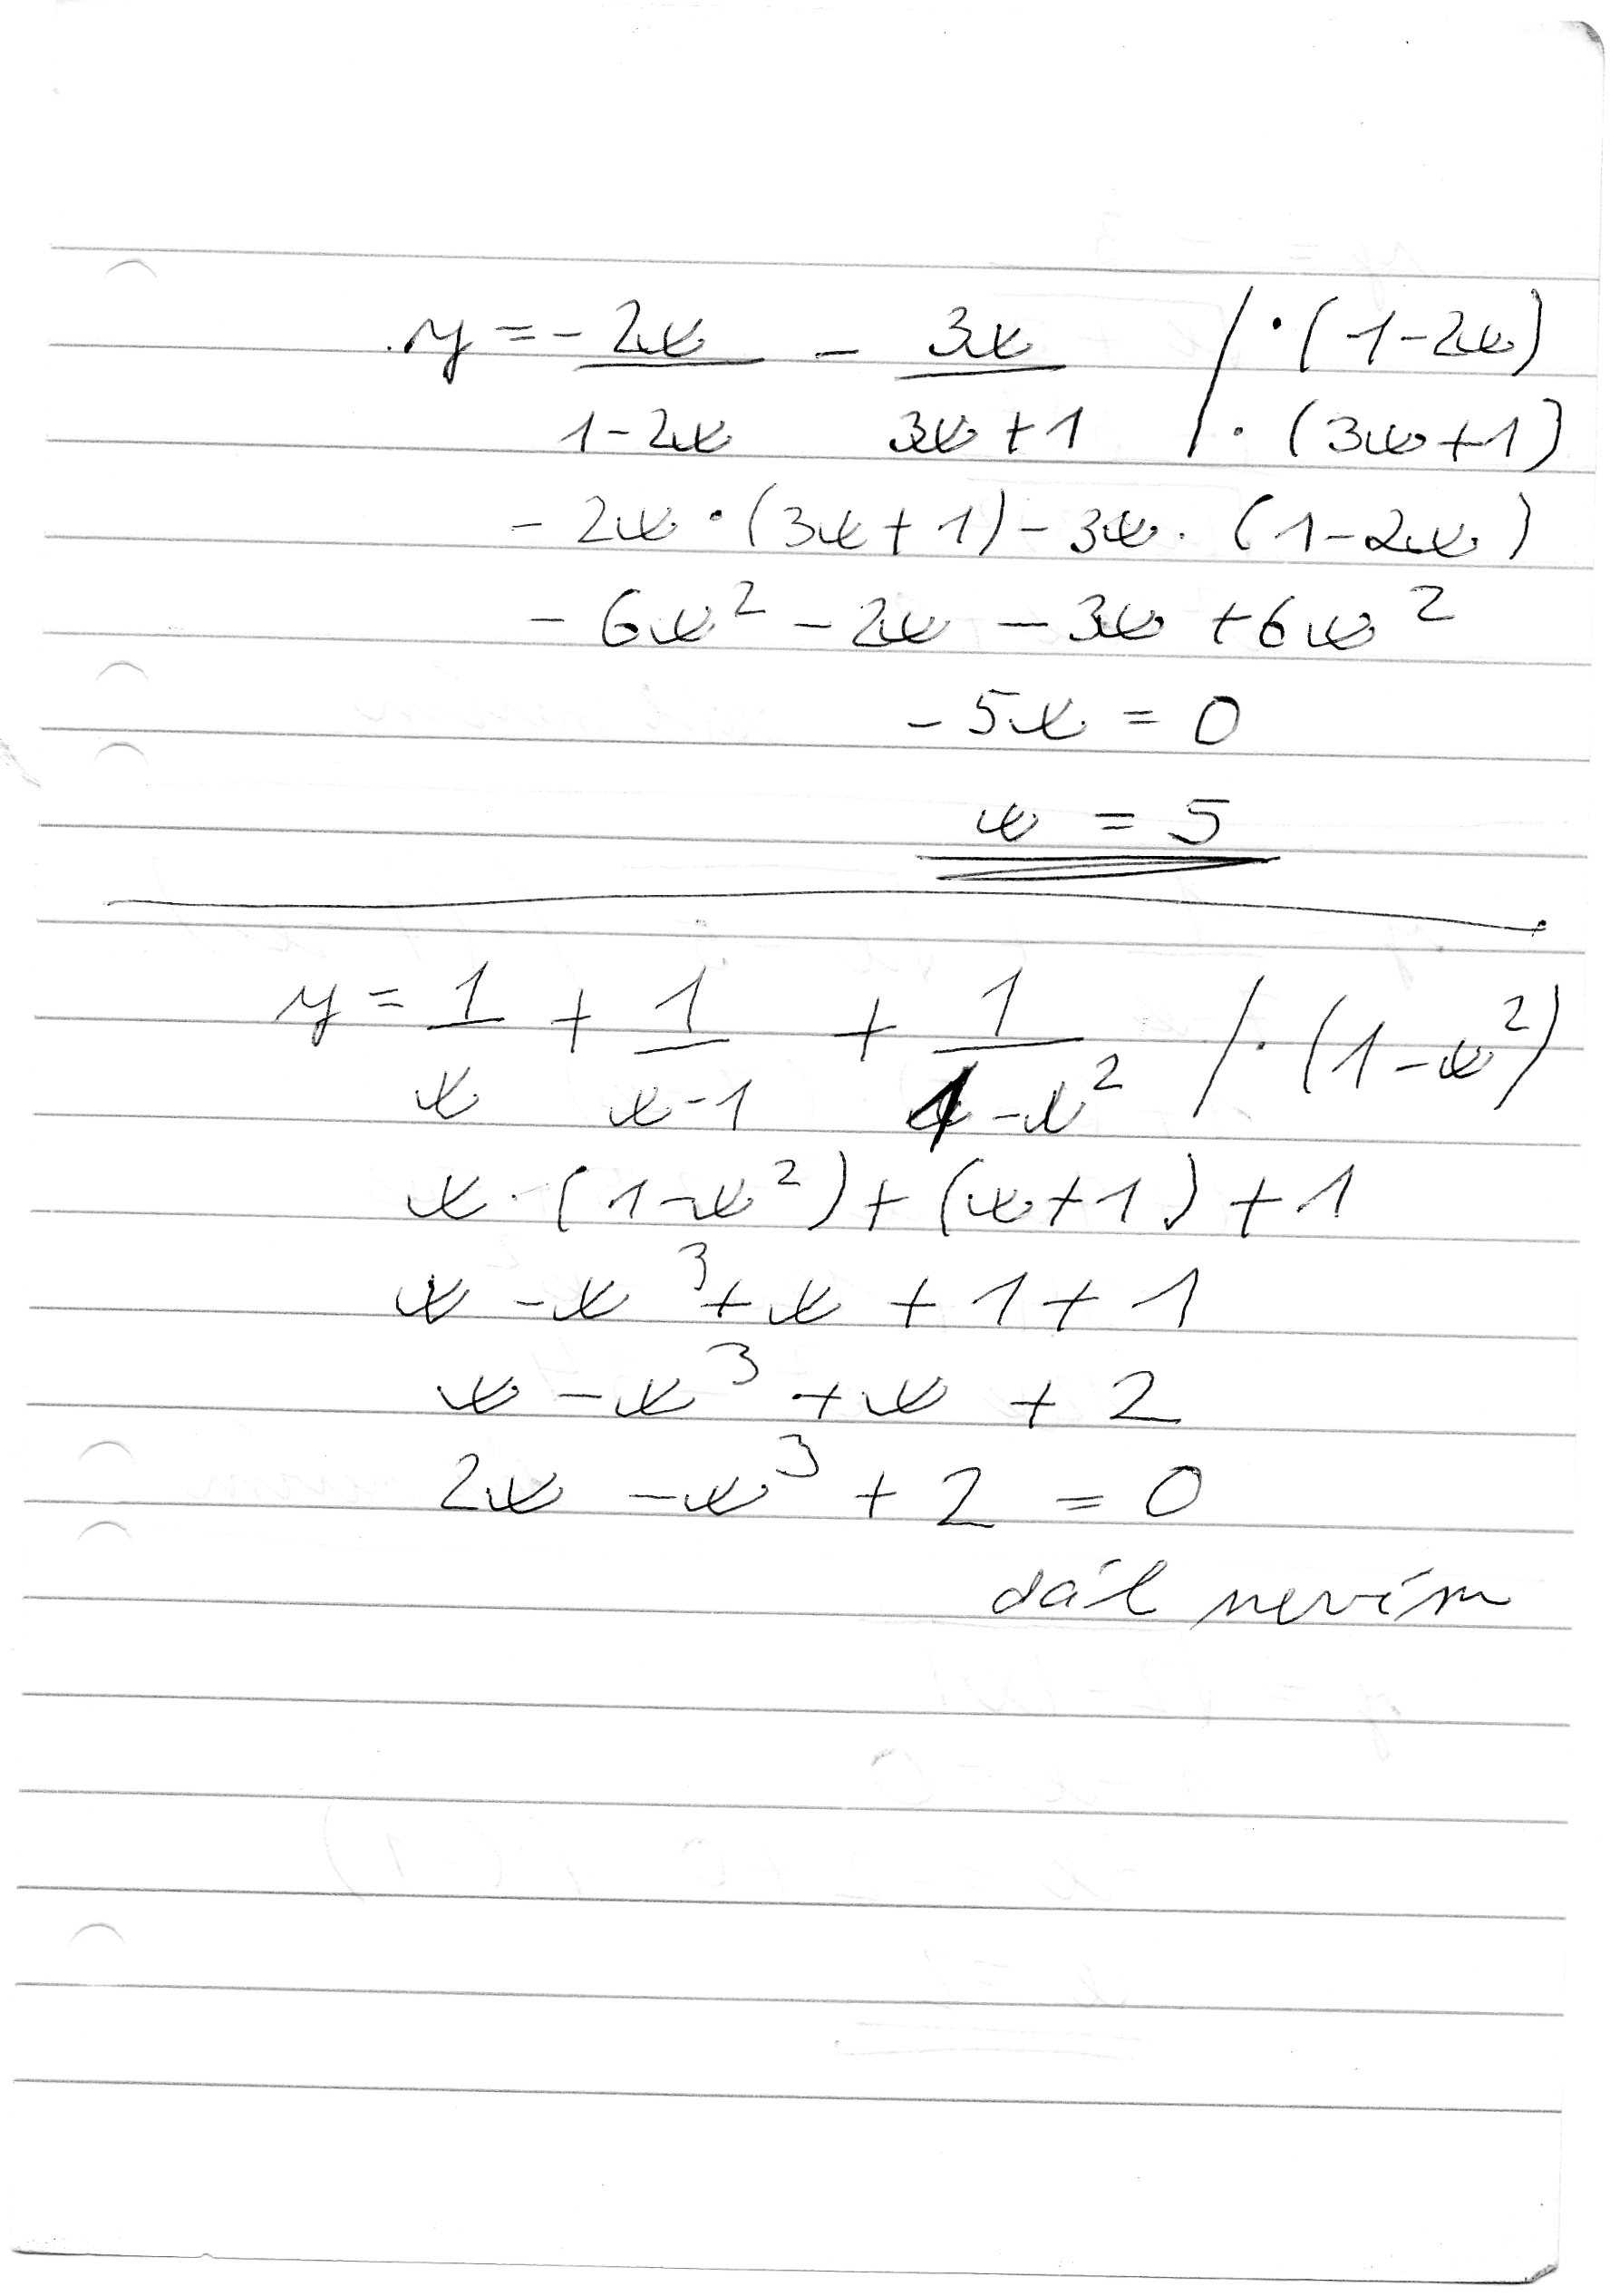 y = - 2x/(1-2x) - 3x/(3x+1) / · (1-2x) · (3x+1)
- 2x · (3x+1) - 3x · (1-2x)
- 6x² - 2x - 3x + 6x²
- 5x = 0
x = 5
y = 1/x + 1/(x-1) + 1/(1-x²) / · (1-x²)
x · (1-x²) + (x+1) + 1
x - x³ + x + 1 + 1
x - x³ + x + 2
2x - x³ + 2 = 0
dál nevím